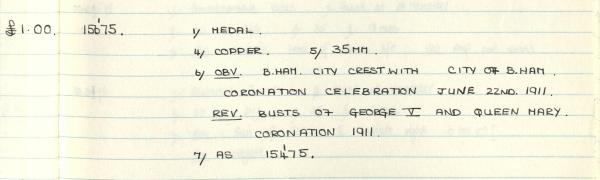 £1.00. 156'75. 1/ MEDAL.
4/ COPPER. 5/ 35MM.
6/ OBV. B.HAM. CITY CREST WITH CITY OF B.HAM.
CORONATION CELEBRATION JUNE 22ND. 1911.
REV. BUSTS OF GEORGE V AND QUEEN MARY.
CORONATION 1911.
7/ AS 154'75.